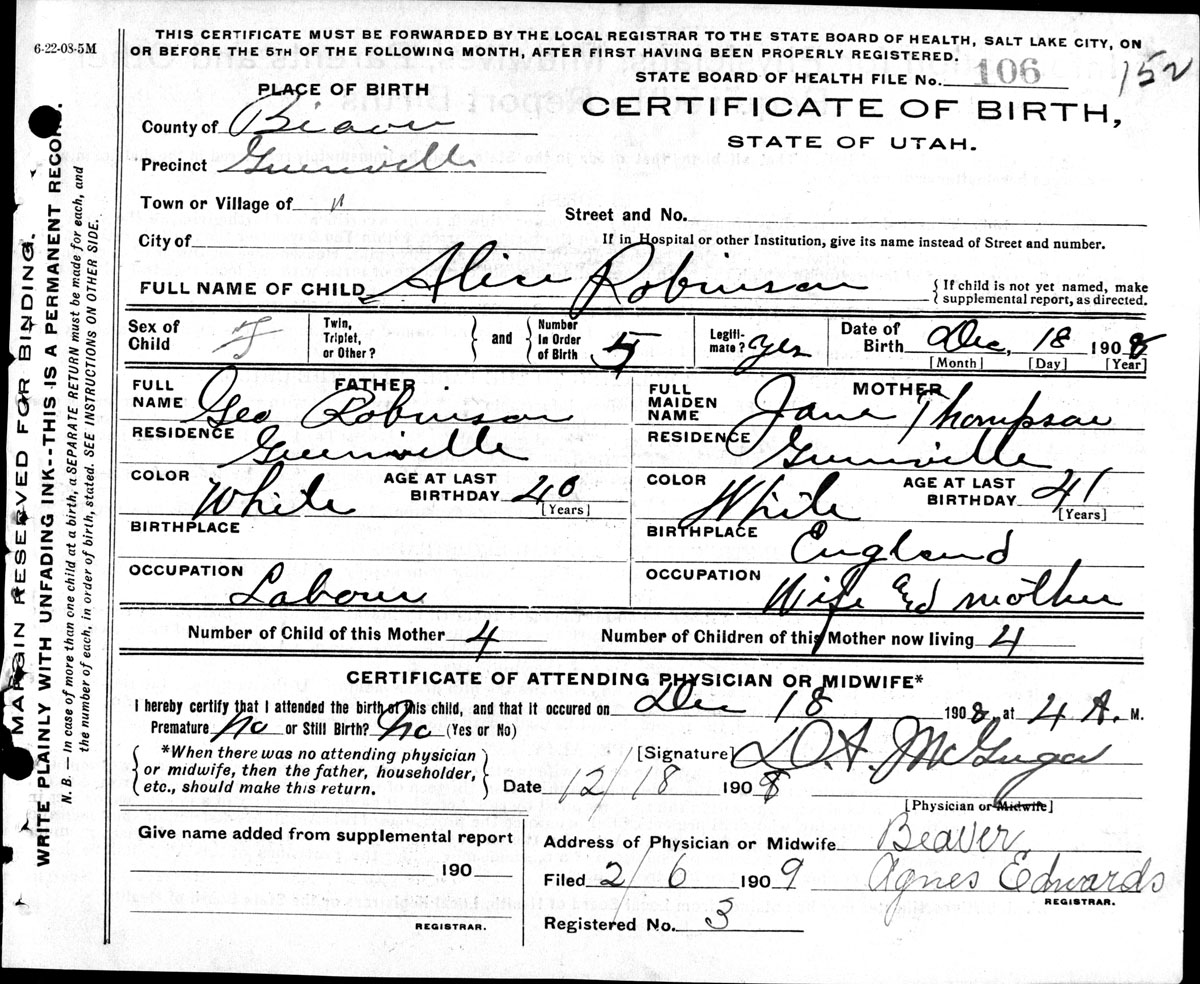 6-22-08-5M
THIS CERTIFICATE MUST BE FORWARDED BY THE LOCAL REGISTRAR TO THE STATE BOARD OF HEALTH, SALT LAKE CITY, ON
OR BEFORE THE 5TH OF THE FOLLOWING MONTH, AFTER FIRST HAVING BEEN PROPERLY REGISTERED.
STATE BOARD OF HEALTH FILE No. 106 152
PLACE OF BIRTH
CERTIFICATE OF BIRTH,
STATE OF UTAH.
County of Beaver
Precinct Greenville
Town or Village of "
Street and No.
City of
If in Hospital or other Institution, give its name instead of Street and number.
FULL NAME OF CHILD Alice Robinson
{If child is not yet named, make
supplemental report, as directed.
Sex of Child F
Twin, Triplet, or Other? } and { Number In Order of Birth 5
Legiti-mate? Yes
Date of Birth Dec, 18 1908
[Month] [Day] [Year]
FATHER
FULL NAME Geo Robinson
RESIDENCE Greenville
COLOR White
AGE AT LAST BIRTHDAY 40
[Years]
BIRTHPLACE
OCCUPATION Labour
MOTHER
FULL MAIDEN NAME Jane Thompson
RESIDENCE Greenville
COLOR White
AGE AT LAST BIRTHDAY 41
[Years]
BIRTHPLACE England
OCCUPATION Wife and mother
Number of Child of this Mother 4
Number of Children of this Mother now living 4
CERTIFICATE OF ATTENDING PHYSICIAN OR MIDWIFE*
I hereby certify that I attended the birth of this child, and that it occured on Dec 18 1908, at 4 A. M.
Premature No or Still Birth? No (Yes or No)
{*When there was no attending physician
or midwife, then the father, householder,
etc., should make this return.}
[Signature] D.A. McGregor
Date 12/18 1908
[Physician or Midwife]
Give name added from supplemental report
190
REGISTRAR.
Address of Physician or Midwife Beaver
Filed 2/6 1909 Agnes Edwards
REGISTRAR.
Registered No. 3
MARGIN RESERVED FOR BINDING.
WRITE PLAINLY WITH UNFADING INK--THIS IS A PERMANENT RECORD.
N. B. — In case of more than one child at a birth, a SEPARATE RETURN must be made for each, and
the number of each, in order of birth, stated. SEE INSTRUCTIONS ON OTHER SIDE.